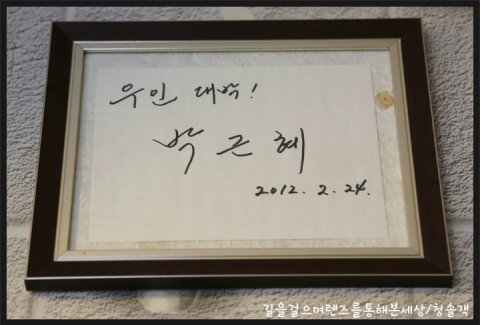 우인 대박!
박근혜
2012. 2. 24.
길을걸으며렌즈를통해본세상/청솔객